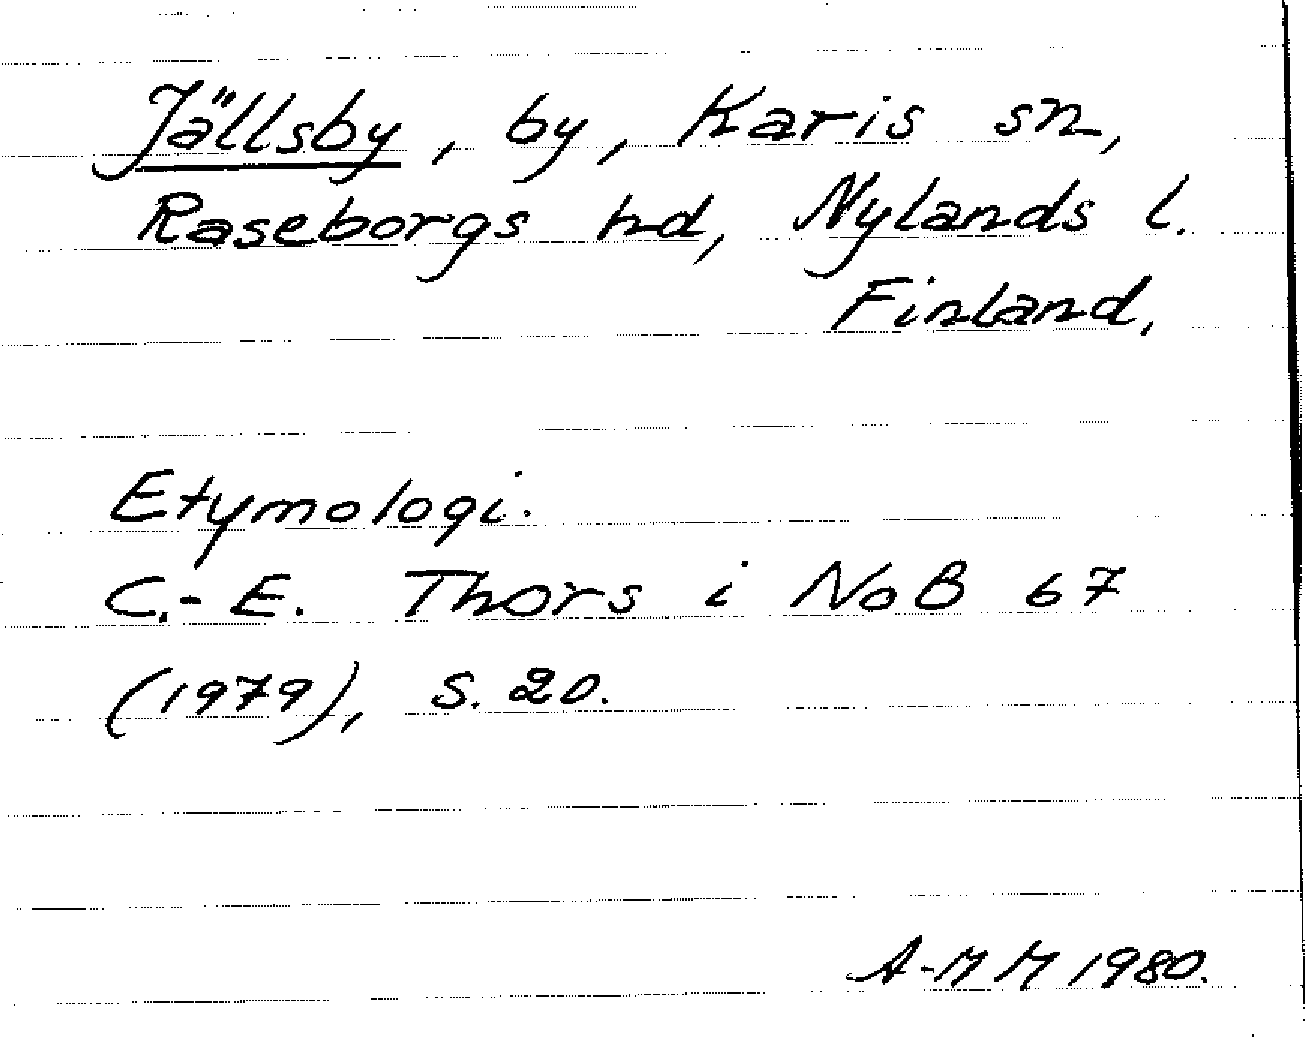 Jällsby, by, Karis sn,
Raseborgs hd, Nylands l.
Finland.
Etymologi.
C.-E. Thors i NoB 67
(1979), s. 20.
A-MM 1980.